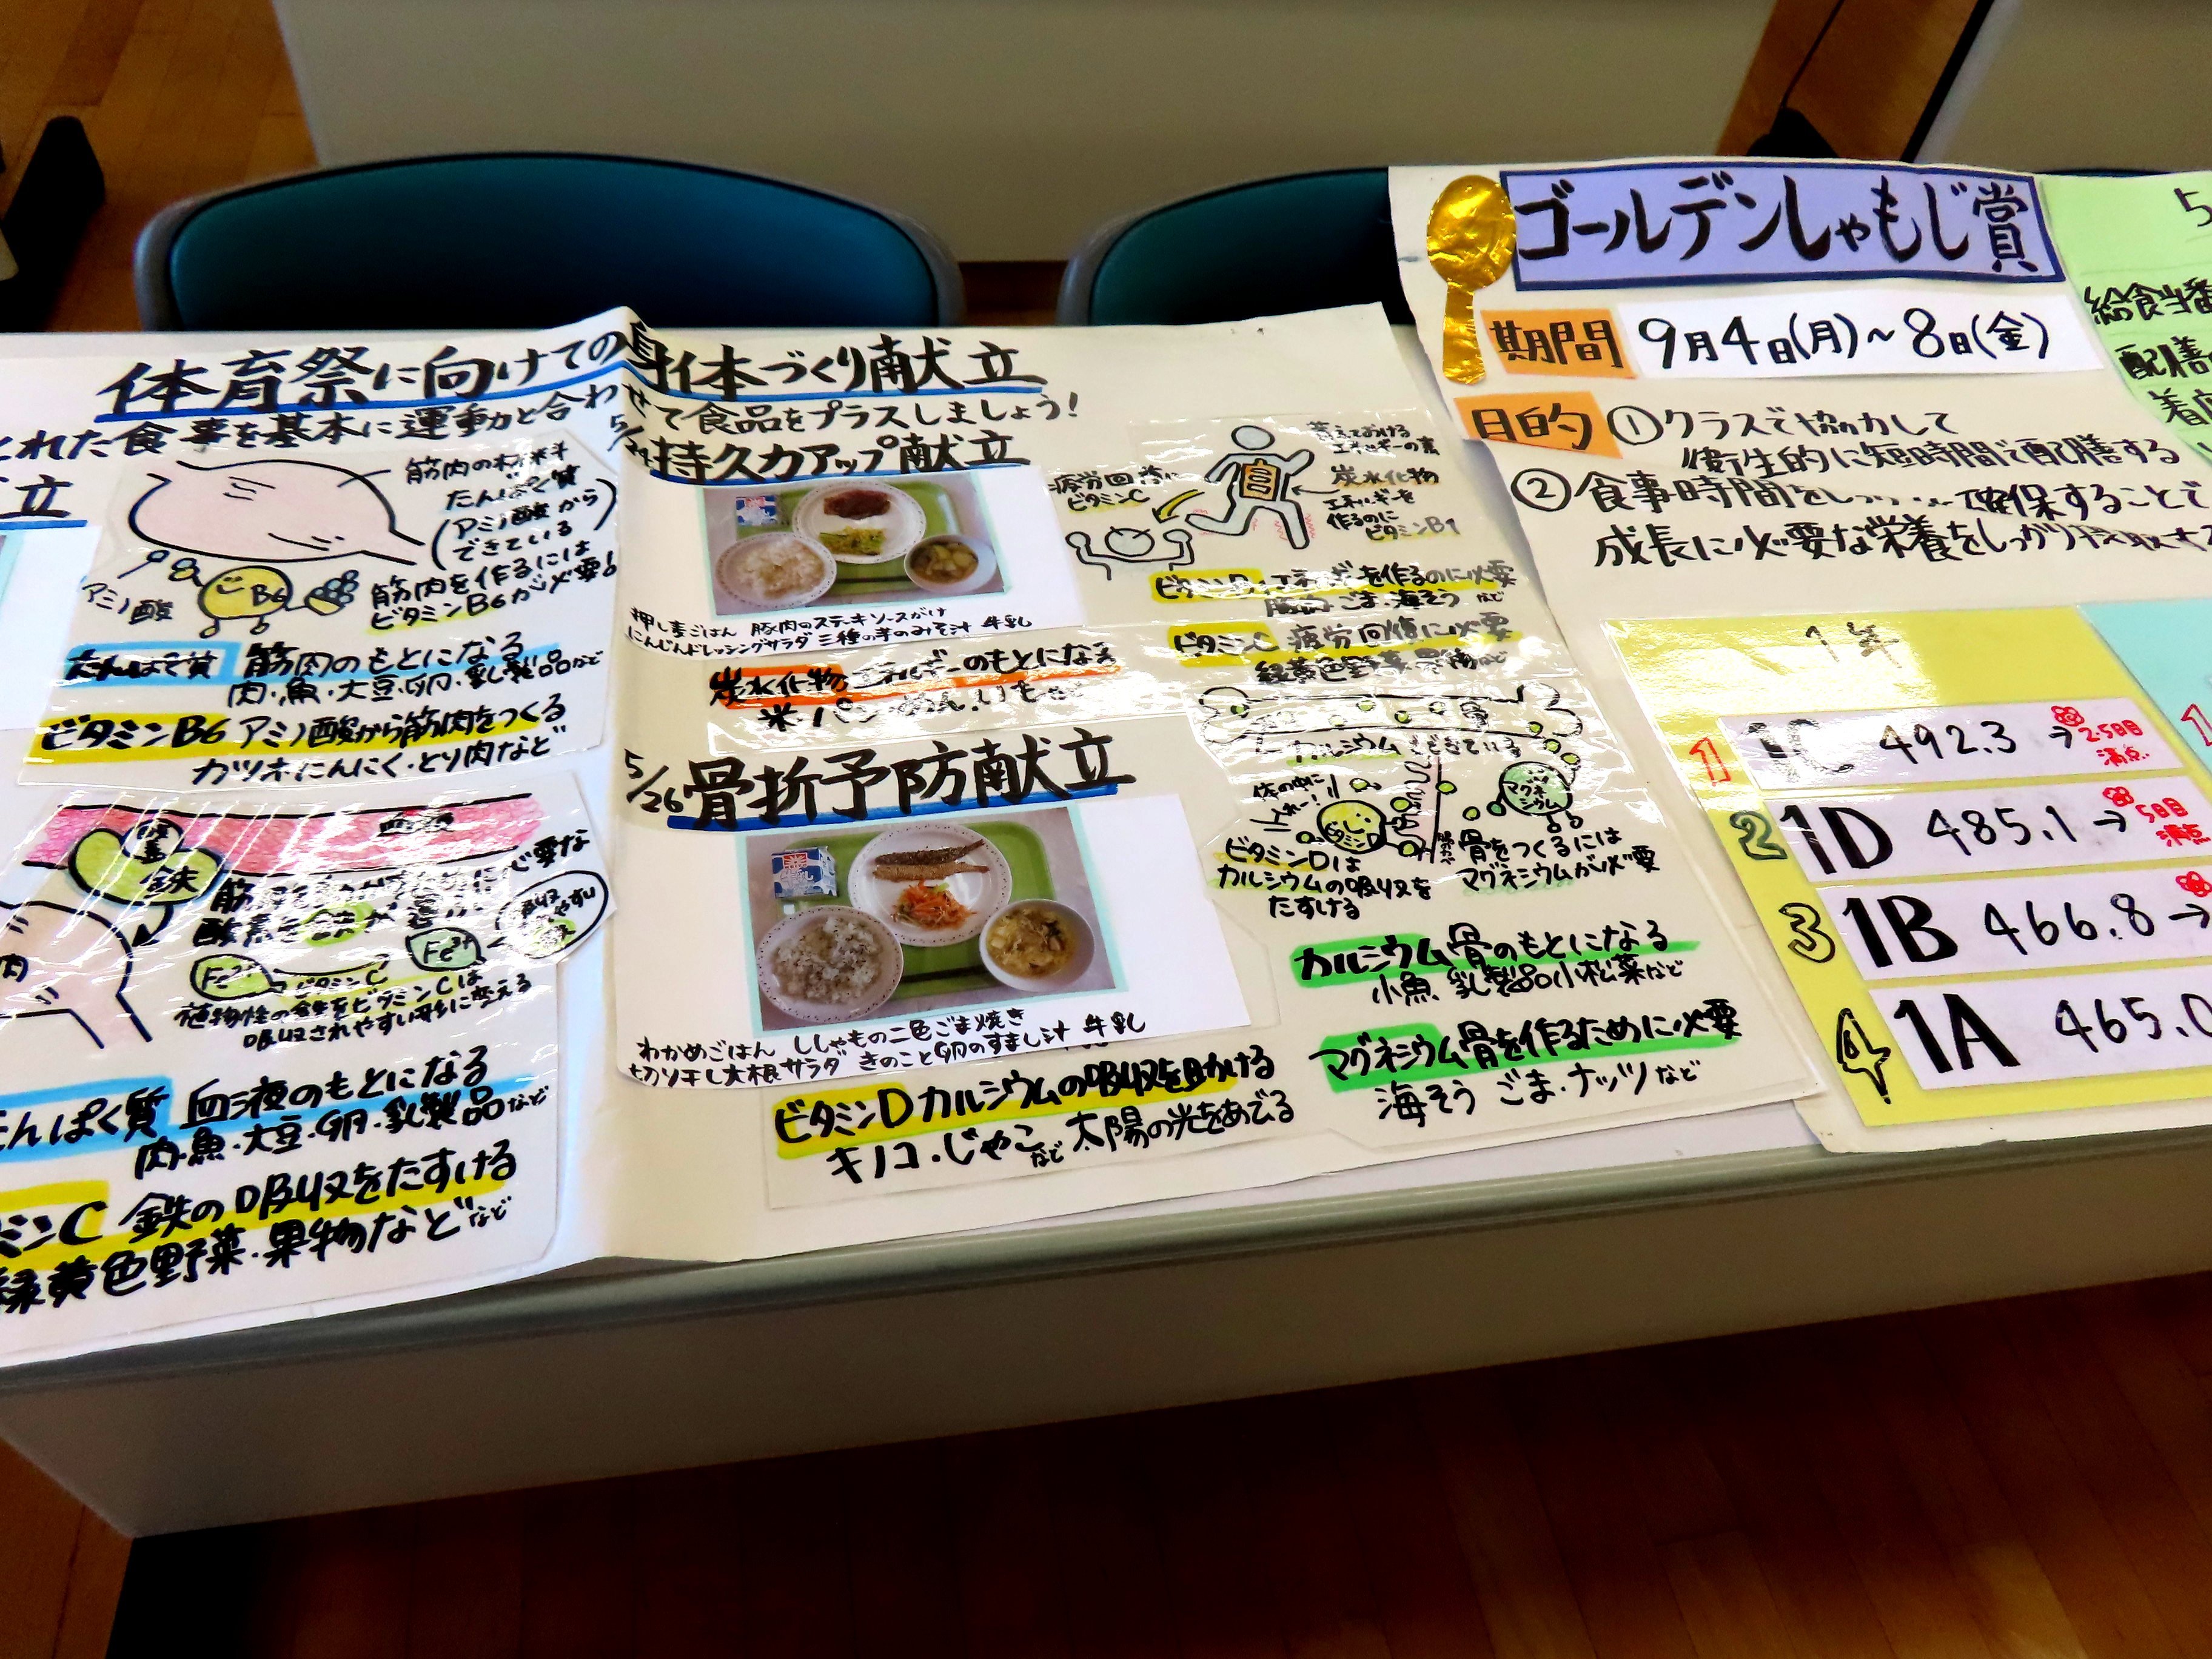 体育祭に向けての身体づくり献立
とれた食事を基本に運動と合わせて食品をプラスしましょう!
立
筋肉の材料
たんぱく質
(アミノ酸から
できている)
アミノ酸
B6
筋肉を作るには
ビタミンB6が必要!
たんぱく質 筋肉のもとになる
肉・魚・大豆・卵・乳製品など
ビタミンB6 アミノ酸から筋肉をつくる
カツオ・にんにく・とり肉など
鉄
酸素を
Fe2+
ビタミンC
Fe2+
植物性の鉄をビタミンCは
吸収されやすい形に変える
たんぱく質 血液のもとになる
肉・魚・大豆・卵・乳製品など
ミンC 鉄の吸収をたすける
緑黄色野菜・果物などなど
持久力アップ献立
押し麦ごはん 豚肉のステーキソースがけ
にんじんドレッシングサラダ 三種の芋のみそ汁 牛乳
炭水化物 エネルギーのもとになる
米・パン・めん・いもなど
疲労回復に
ビタミンC
蓄えておける
エネルギーの素
炭水化物
エネルギーを
作るのに
ビタミンB1
ビタミンB1 エネルギーを作るのに必要
豚肉・ごま・海そう など
ビタミンC 疲労回復に必要
緑黄色野菜・果物など
5/26 骨折予防献立
わかめごはん ししゃもの二色ごま焼き
切り干し大根サラダ きのこと卵のすまし汁 牛乳
ビタミンD カルシウムの吸収を助ける
キノコ・じゃこなど 太陽の光をあびる
骨
カルシウム でできている
体の中に
入れー!!
ビタミンD
マグネシウム
ビタミンDは
カルシウムの吸収を
たすける
骨をつくるには
マグネシウムが必要
カルシウム 骨のもとになる
小魚 乳製品 小松菜など
マグネシウム 骨を作るために必要
海そう ごま・ナッツ など
ゴールデンしゃもじ賞
期間 9月4日(月)~8日(金)
目的 ①クラスで協力して
衛生的に短時間で配膳する
②食事時間をしっかり確保することで
成長に必要な栄養をしっかり摂取する
1年
1 1C 492.3 → 2.5日目
満点
2 1D 485.1 → 5日目
満点
3 1B 466.8 →
4 1A 465.0
5
給食当番
配膳